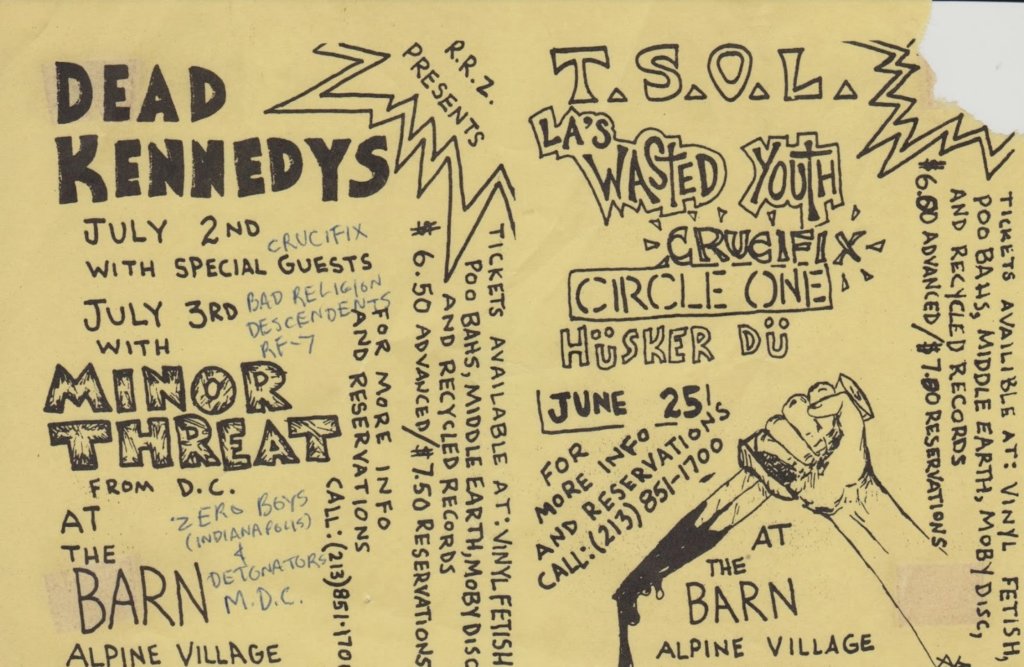 DEAD
KENNEDYS
JULY 2ND
WITH SPECIAL GUESTS
CRUCIFIX
JULY 3RD
WITH
BAD RELIGION
DESCENDENTS
RF-7
MINOR
THREAT
FROM D.C.
AT
THE
BARN
ALPINE VILLAGE
ZERO BOYS
(INDIANAPOLIS)
&
DETONATORS
M.D.C.
FOR MORE INFO
AND RESERVATIONS
CALL: (213) 851-1700
R.R.Z.
PRESENTS
TICKETS AVAILABLE AT: VINYL FETISH
POO BAHS, MIDDLE EARTH, MOBY DISC
AND RECYCLED RECORDS
$6.50 ADVANCED/$7.50 RESERVATIONS
T.S.O.L.
LA'S
WASTED YOUTH
CRUCIFIX
CIRCLE ONE
HÜSKER DÜ
JUNE 25!
FOR
MORE INFO
AND RESERVATIONS
CALL: (213) 851-1700
AT
THE
BARN
ALPINE VILLAGE
TICKETS AVAILIBLE AT: VINYL FETISH,
POO BAHS, MIDDLE EARTH, MOBY DISC,
AND RECYCLED RECORDS
$6.00 ADVANCED/$7.00 RESERVATIONS